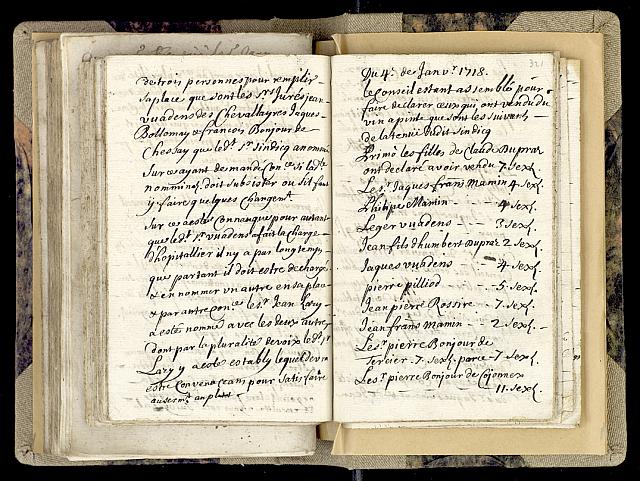 de trois personnes pour remplir
sa place que sont les Srs Jurés jean
vuadens des Chevallayres Jaques
Bollomay & françois Bonjour de
Chessay que ledt Sr sindicq a nommé
Sur ce ayant demandé Con.ce si led.t
nominaõn doit subsister ou s'il faut
y faire quelques Changem.t
Sur ce a esté Connu que pour autant
que led.t Sr vuadens a fait la charge
d'hospitallier il ny a pas longtemps
que partant il doit estre dechargé
& en nommer un autre en sa place
& par autre con.ce le sr Jean Lazy
a esté nommé avec les deux autres
dont par la pluralité de voix led.t Sr
Lazy y a esté estably lequel devra
estre convenu ceans pour satisfaire
au serm.t an plait
321
Du 4.e de Janv.r 1718.
le Conseil estant assemblé pour
faire declarer ceux qui ont vendu du
vin a pinte que sont les suivants
de la tenüe dudit sindicq
Primo les filles de Claude Dupraz
ont declaré avoir vendu 7. Sex.
Le Sr Jaques frans Mamin 4 Sex.
Philipe Mamin - - - 4 Sex.
Leger vuadens - - 3 Sex.
Jean fils d'humbert Dupraz 2 Sex.
Jaques vuadens - - 4 Sex.
pierre pilliod - - 5. Sex.
Jean pierre Rossire - 7. Sex.
Jean frans Mamin - - 2 Sex.
Le Sr pierre Bonjour de
Tercier. 7. Sex. parce - 7. Sex.
Le Sr pierre Bonjour de Cojonnex
11. Sex.